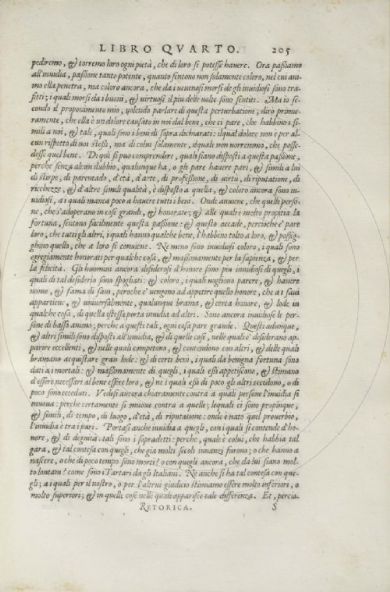 LIBRO QVARTO. 205
pediremo, & torremo loro ogni pietà, che di loro si potesse havere. Ora passiamo
all'invidia, passione tanto potente, quanto sentono non solamente coloro, nel cui ani-
mo ella penetra, ma coloro ancora, che da i velenosi morsi de gli invidiosi sono tra-
fitti; i quali morsi da i buoni, & virtuosi il più delle volte sono sentiti. Ma io se-
condo il proponimento mio, volendo parlare di questa perturbatione; dico primie-
ramente, che ella è un dolore causato in noi dal bene, che ci pare, che habbino i si-
mili a noi, & tali, quali sono i beni di sopra dichiarati: il qual dolore non è per al-
cun rispetto di noi stessi, ma di colui solamente, il quale non vorremmo, che posse-
desse quel bene. Di quì si puo comprendere, quali siano disposti a questa passione,
perche senza alcun dubbio, qualunque ha, o gli pare havere pari, & simili a lui
di stirpe, di parentado, d'età, d'arte, di professione, di virtù, di riputatione, di
ricchezze, & d'altre simili qualità, è disposto a quella, & coloro ancora sono in-
vidiosi, a i quali manca poco a havere tutti i beni. Onde avviene, che quelli perso-
ne, che s'adoperano in cose grandi, & honorate; & alle quali è molto propitia la
fortuna, sentono facilmente questa passione: & questo accade, percioche è pare
loro, che tutti gli altri, i quali hanno qualche bene, l'habbino tolto a loro, & posseg-
ghino quello, che a loro si conviene. Ne meno sono invidiosi coloro, i quali sono
egregiamente honorati per qualche cosa, & massimamente per la sapienza, & per
la felicità. Gli huomini ancora desiderosi d'honore sono piu invidiosi di quegli, i
quali di tal desiderio sono spogliati: & coloro, i quali vogliono parere, & havere
nome, & fama di savi, peroche è vengono ad appetire quello honore, che a i savi
appartiene, & universalmente, qualunque brama, & cerca havere, & lode in
qualche cosa, di quella istessa porta invidia ad altri. Sono ancora invidiose le per-
sone di basso animo; perche a questi tali, ogni cosa pare grande. Questi adunque,
& altri simili sono disposti all'invidia, & di quelle cose, nelle quali è desiderano ap-
parere eccellenti, & nelle quali competono, & contendono con altri, & delle quali
bramano acquistare gran lode: & di certi beni, i quali da benigna fortuna sono
dati a i mortali: & massimamente di quegli, i quali essi appetiscono, & stimano
d'essere necessari al bene essere loro, & ne i quali essi di poco gli altri eccedono, o di
poco sono ecceduti. Vedesi ancora chiaramente contra a quali persone l'invidia si
muova: perche certamente si muove contra a quelle; lequali ci sono propinque,
& simili, di tempo, di luogo, d'età, di riputatione: onde è nato quel proverbio,
l'invidia è tra i pari. Portasi anche invidia a quegli, con i quali si contende d'ho-
nore, & di degnità: tali sono i sopradetti: perche, quale è colui, che habbia tal
gara, & tal contesa con quegli, che già molti secoli innanzi furono; o che hanno a
nascere, o che di poco tempo sono morti? o con quegli ancora, che da lui siano mol-
to lontani? come sono i Tartari da gli Italiani. Ne anche si ha tal contesa con que-
gli; a i quali per il nostro, o per l'altrui giudicio stimiamo essere molto inferiori, o
molto superiori; & in quelle cose nelle quali apparisce tale differenza. Et, percio-
RETORICA. S